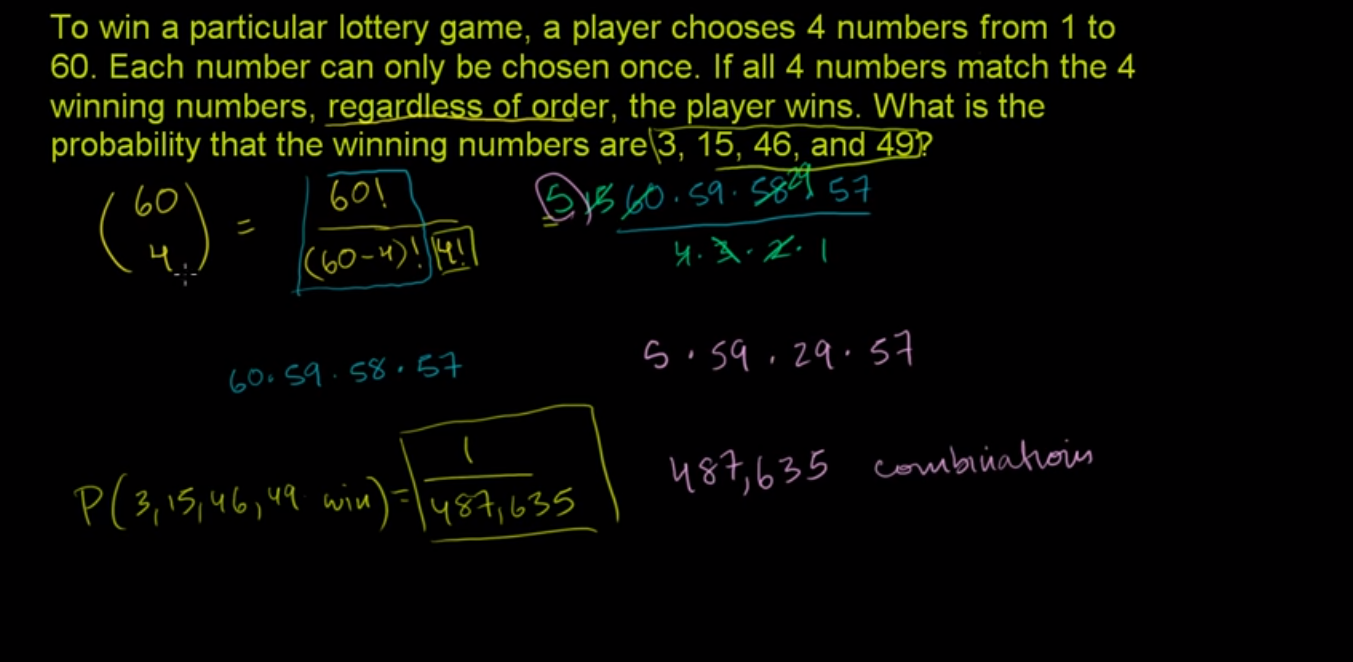 To win a particular lottery game, a player chooses 4 numbers from 1 to
60. Each number can only be chosen once. If all 4 numbers match the 4
winning numbers, regardless of order, the player wins. What is the
probability that the winning numbers are 3, 15, 46, and 49?
(60 4) = 60! / (60-4)! 4!
5 15 60 · 59 · 58 29 57 / 4 · 3 · 2 · 1
60 · 59 · 58 · 57
5 · 59 · 29 · 57
P(3, 15, 46, 49 win) = 1 / 487,635
487,635 combinations